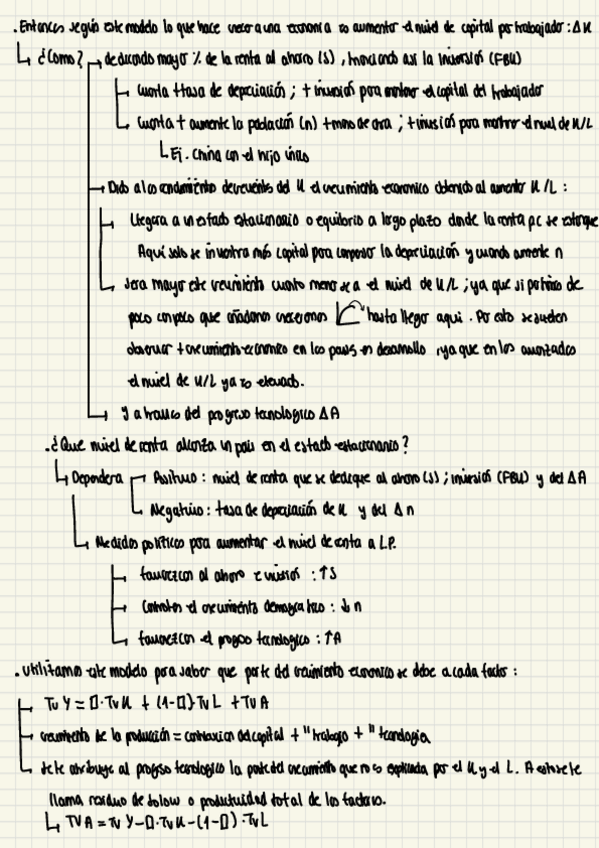 . Entonces según este modelo lo que hace crecer a una economía es aumentar el nivel de capital por trabajador: ΔK
↳ ¿Como? → dedicando mayor % de la renta al ahorro (s), financiando así la inversión (FBK)
Cuanta + tasa de depreciación; + inversión para mantener el capital del trabajador
Cuanto + aumente la población (n) + mano de obra; + inversión para mantener el nivel de K/L
↳ Ej. China con el hijo único
→ Dado a los rendimientos decrecientes del K el crecimiento económico obtenido al aumentar K/L:
Llegara a un estado estacionario o equilibrio a largo plazo donde la renta pc se estanque
Aquí solo se invertira más capital para compensar la depreciación y cuando aumente n
Sera mayor este crecimiento cuanto menor sea el nivel de K/L; ya que si partimos de
poco con poco que añadamos creceremos hasta llegar aqui. Por esto se suelen
observar + crecimiento económico en los países en desarrollo, ya que en los avanzados
el nivel de K/L ya es elevado.
→ Y a traves del progreso tecnologico ΔA
. ¿Que nivel de renta alcanza un país en el estado estacionario?
↳ Dependera Positivo: nivel de renta que se dedique al ahorro (s); inversión (FBK) y del ΔA
Negativo: tasa de depreciación de K y del Δn
↳ Medidas políticas para aumentar el nivel de renta a LP.
favorezcan al ahorro e inversión: ↑S
Controlen el crecimiento demografico: ↓n
favorezcan el progreso tecnologico: ↑A
. Utilizamos este modelo para saber que parte del crecimiento económico se debe a cada factor:
Tv Y = □·Tv K + (1-□) Tv L + Tv A
crecimiento de la producción = contribucion del capital + "trabajo + "tecnología
se le atribuye al progreso tecnologico la parte del crecimiento que no es explicada por el K y el L. A esto se le
llama residuo de Solow o productividad total de los factores.
↳ TV A = Tv Y - □·Tv K - (1-□)·Tv L